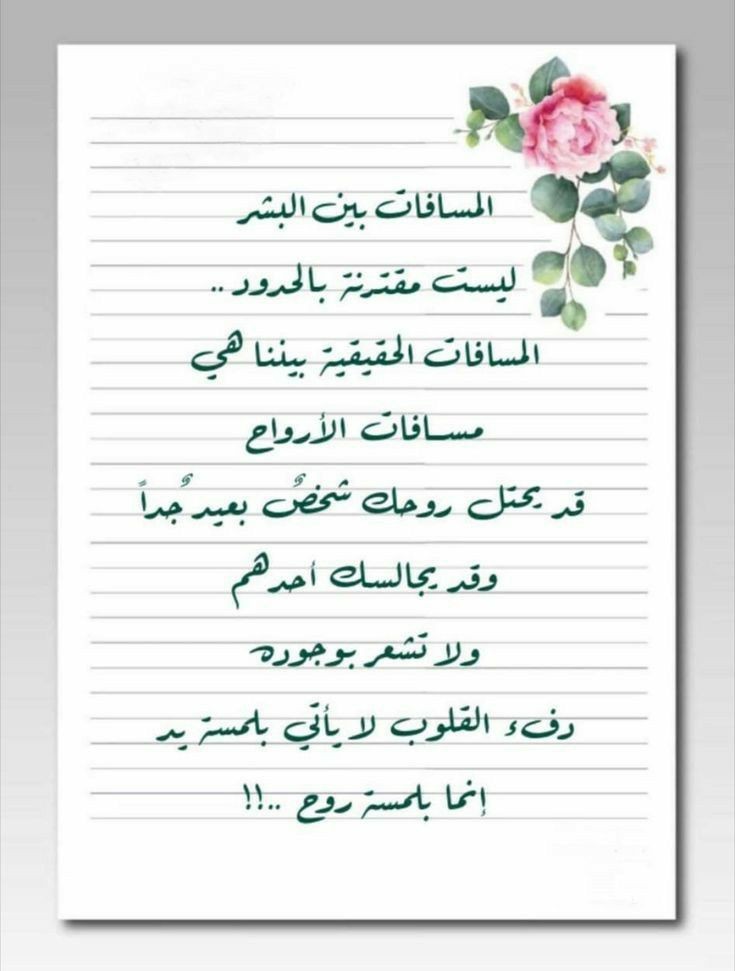 المسافات بين البشر
ليست مقترنة بالحدود ..
المسافات الحقيقية بيننا هي
مسافات الأرواح
قد يحتل روحك شخصٌ بعيدٌ جداً
وقد يجالسك أحدهم
ولا تشعر بوجوده
دفء القلوب لا يأتي بلمسة يد
إنما بلمسة روح ..!!